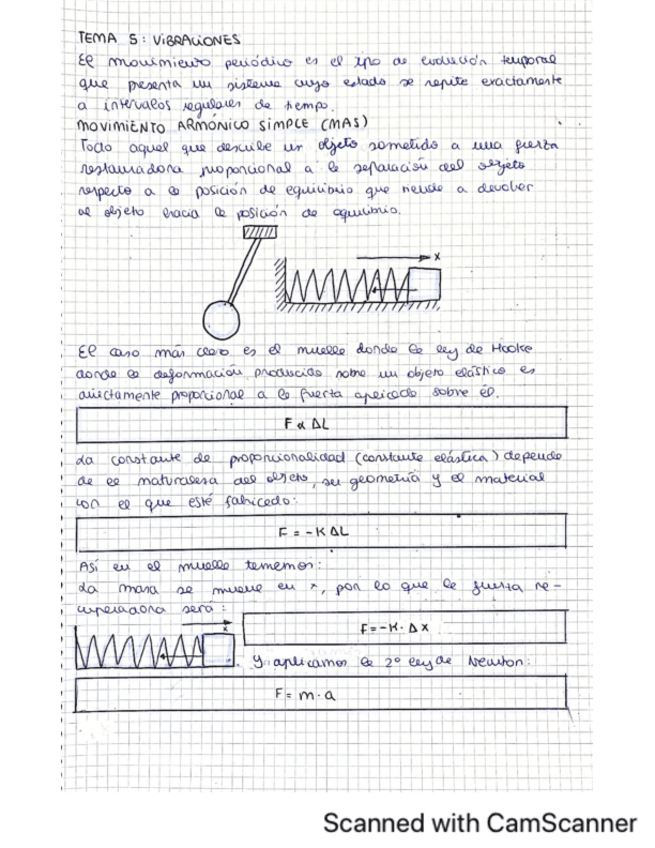 TEMA 5: VIBRACIONES
El movimiento periódico es el tipo de evolución temporal
que presenta un sistema cuyo estado se repite exactamente
a intervalos regulares de tiempo.
MOVIMIENTO ARMÓNICO SIMPLE (MAS)
Todo aquel que describe un objeto sometido a una fuerza
restauradora proporcional a la separación del objeto
respecto a la posición de equilibrio que tiende a devolver
al objeto hacia la posición de equilibrio.
x
El caso más claro es el muelle donde la ley de Hooke
donde la deformación producida sobre un objeto elástico es
directamente proporcional a la fuerza aplicada sobre él.
F α ΔL
La constante de proporcionalidad (constante elástica) depende
de la naturaleza del objeto, su geometría y el material
con el que esté fabricado:
F = -K ΔL
Así en el muelle tenemos:
La masa se mueve en x, por lo que la fuerza re-
cuperadora será:
x
F = -K · Δx
Y aplicamos la 2º ley de Newton:
F = m · a
Scanned with CamScanner